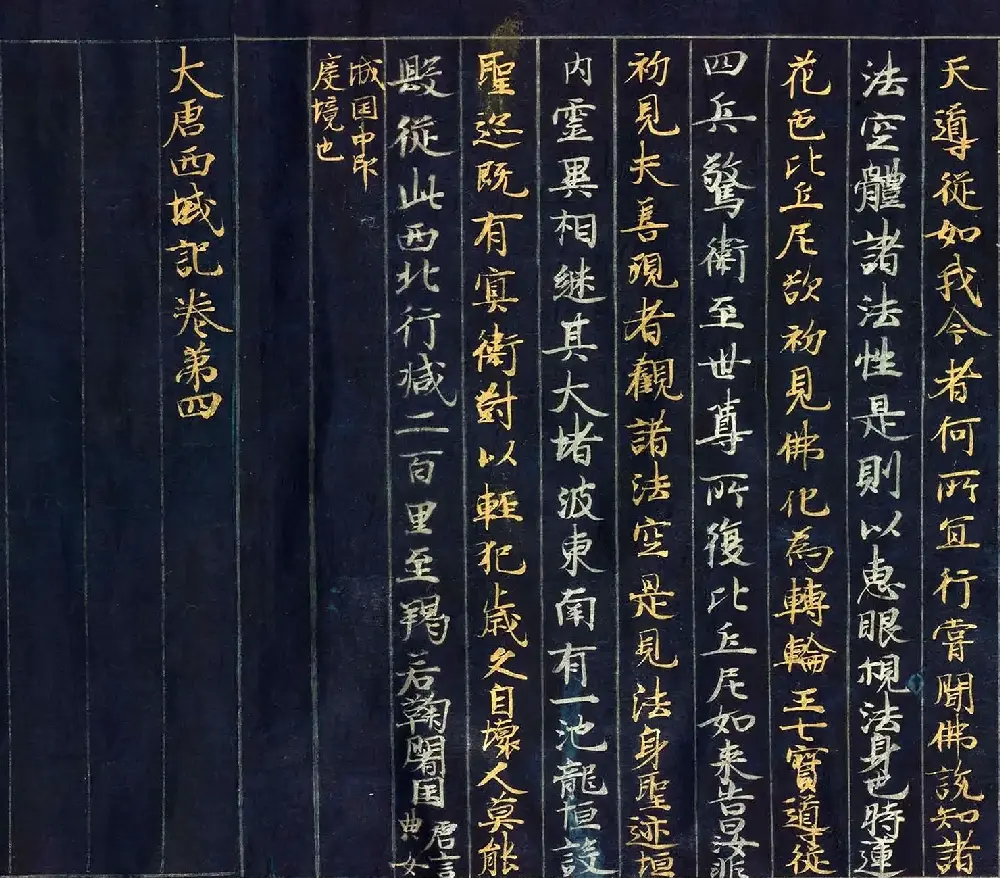 天導從如我今者何所宜行嘗聞佛說知諸
法空體諸法性是則以惠眼視法身也時蓮
花色比丘尼欲初見佛化為轉輪王七寶導從
四兵驚衛至世尊所復比丘尼如来告曰汝非
初見夫善現者觀諸法空是見法身聖迹垣
內靈異相継其大堵波東南有一池龍恒設
聖迹既有冥衛對以軽犯歲久自壞人莫能
毀從此西北行減二百里至羯若鞠闍国唐言曲女
城国中印度境也
大唐西域記巻第四